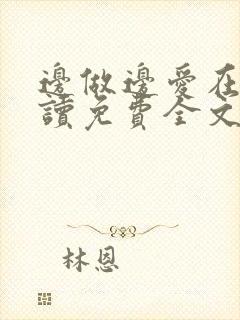 邊做邊愛在
讀免費全文
林恩